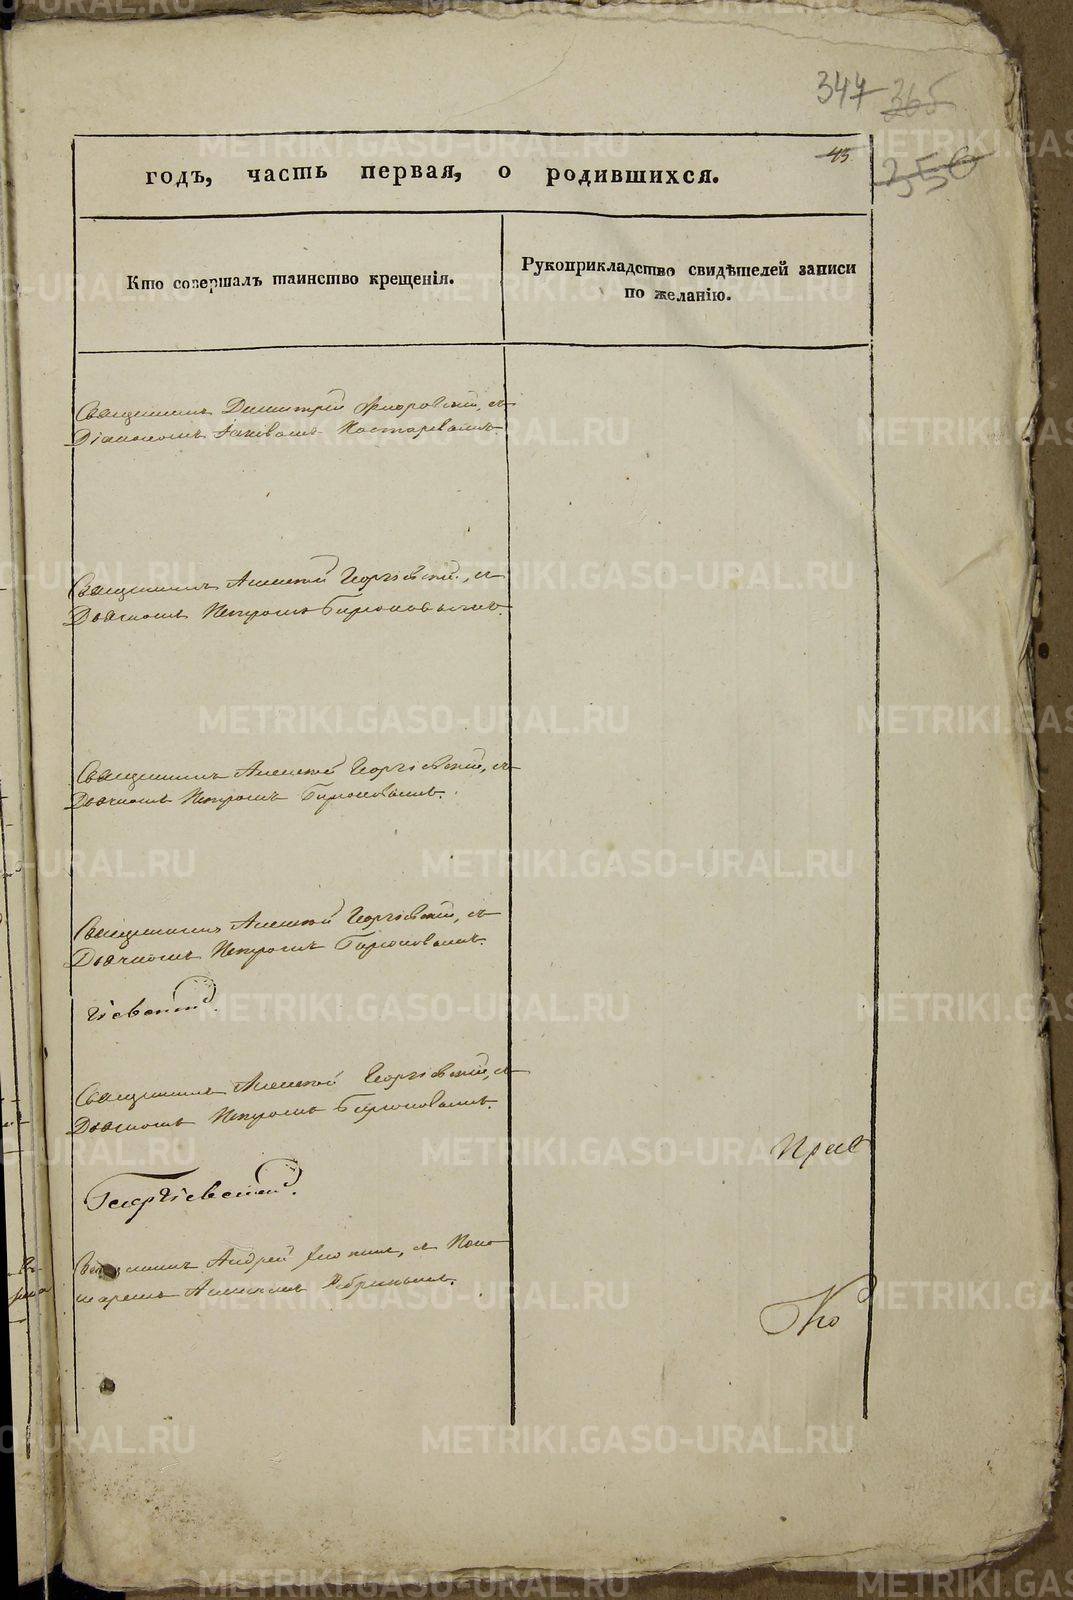 347 365
45
350
годъ, часть первая, о родившихся.
Кто совершалъ таинство крещенія.
Рукоприкладство свидѣтелей записи
по желанію.
Священникъ Димитрій съ
Діакономъ Іаковомъ
Священникъ Алексѣй Георгіевскій, съ
Дьячкомъ Петромъ Бирюковымъ.
Священникъ Алексѣй Георгіевскій, съ
Дьячкомъ Петромъ Бирюковымъ.
Священникъ Алексѣй Георгіевскій, съ
Дьячкомъ Петромъ Бирюковымъ.
гіевскій.
Священникъ Алексѣй Георгіевскій, съ
Дьячкомъ Петромъ Бирюковымъ.
Георгіевскій.
Священникъ Андрей съ Поно-
маремъ Алексѣемъ
METRIKI.GASO-URAL.RU